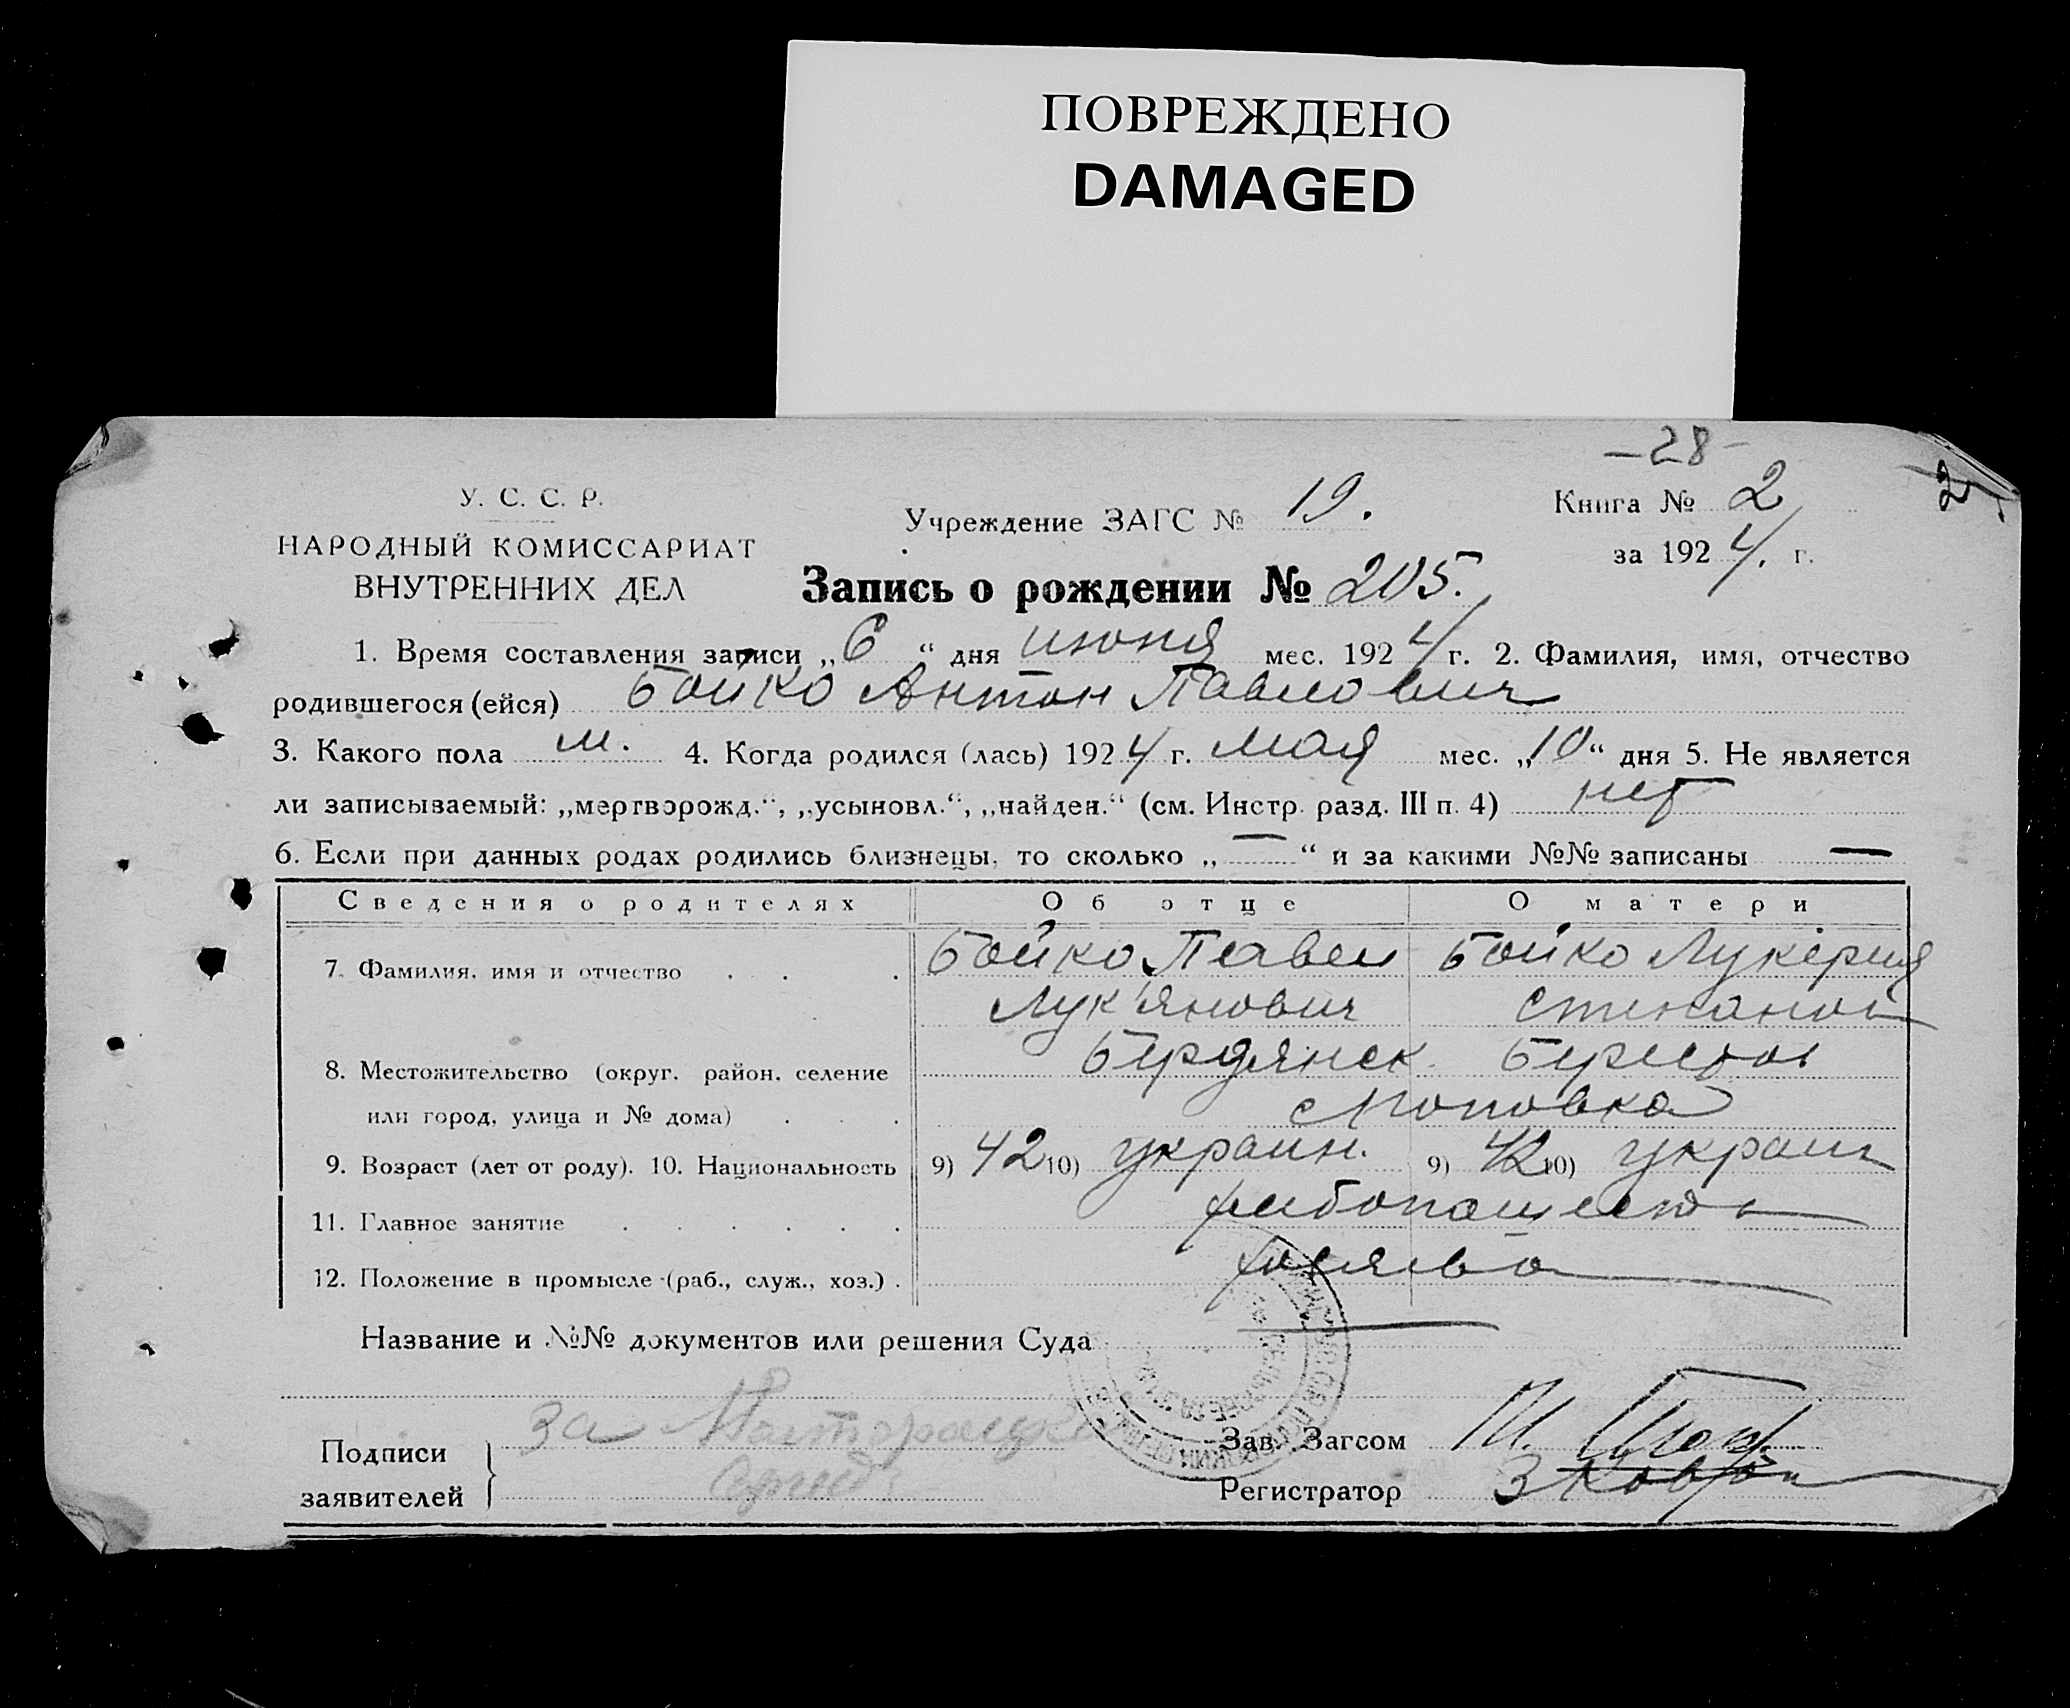 ПОВРЕЖДЕНО
DAMAGED
— 28 —
2
У. С. С. Р.
НАРОДНЫЙ КОМИССАРИАТ
ВНУТРЕННИХ ДЕЛ
Учреждение ЗАГС № 19.
Книга № 2
за 1924. г.
Запись о рождении № 205.
1. Время составления записи „6“ дня июня мес. 1924 г. 2. Фамилия, имя, отчество
родившегося (ейся) Бойко Антон Павлович
3. Какого пола м. 4. Когда родился (лась) 1924 г. мая мес. „10“ дня 5. Не является
ли записываемый: „мертворожд.“, „усыновл.“, „найден.“ (см. Инстр. разд. III п. 4) нет
6. Если при данных родах родились близнецы, то сколько „—“ и за какими №№ записаны —
Сведения о родителях Об отце О матери
7. Фамилия, имя и отчество . . . Бойко Павел Бойко Лукерия
Лук'янович
8. Местожительство (округ, район, селение Бердянск.
или город, улица и № дома) . . .
9. Возраст (лет от роду). 10. Национальность 9) 42 10) украин. 9) 42 10) украин
11. Главное занятие . . . . . .
12. Положение в промысле (раб., служ., хоз.) .
Название и №№ документов или решения Суда
Подписи
заявителей
за
Зав. Загсом
Регистратор